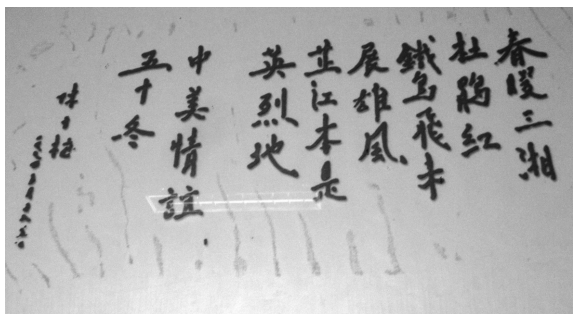 春暖三湘
杜鹃红
鐵鸟飛来
展雄风
芷江本是
英烈地
中美情誼
五十冬